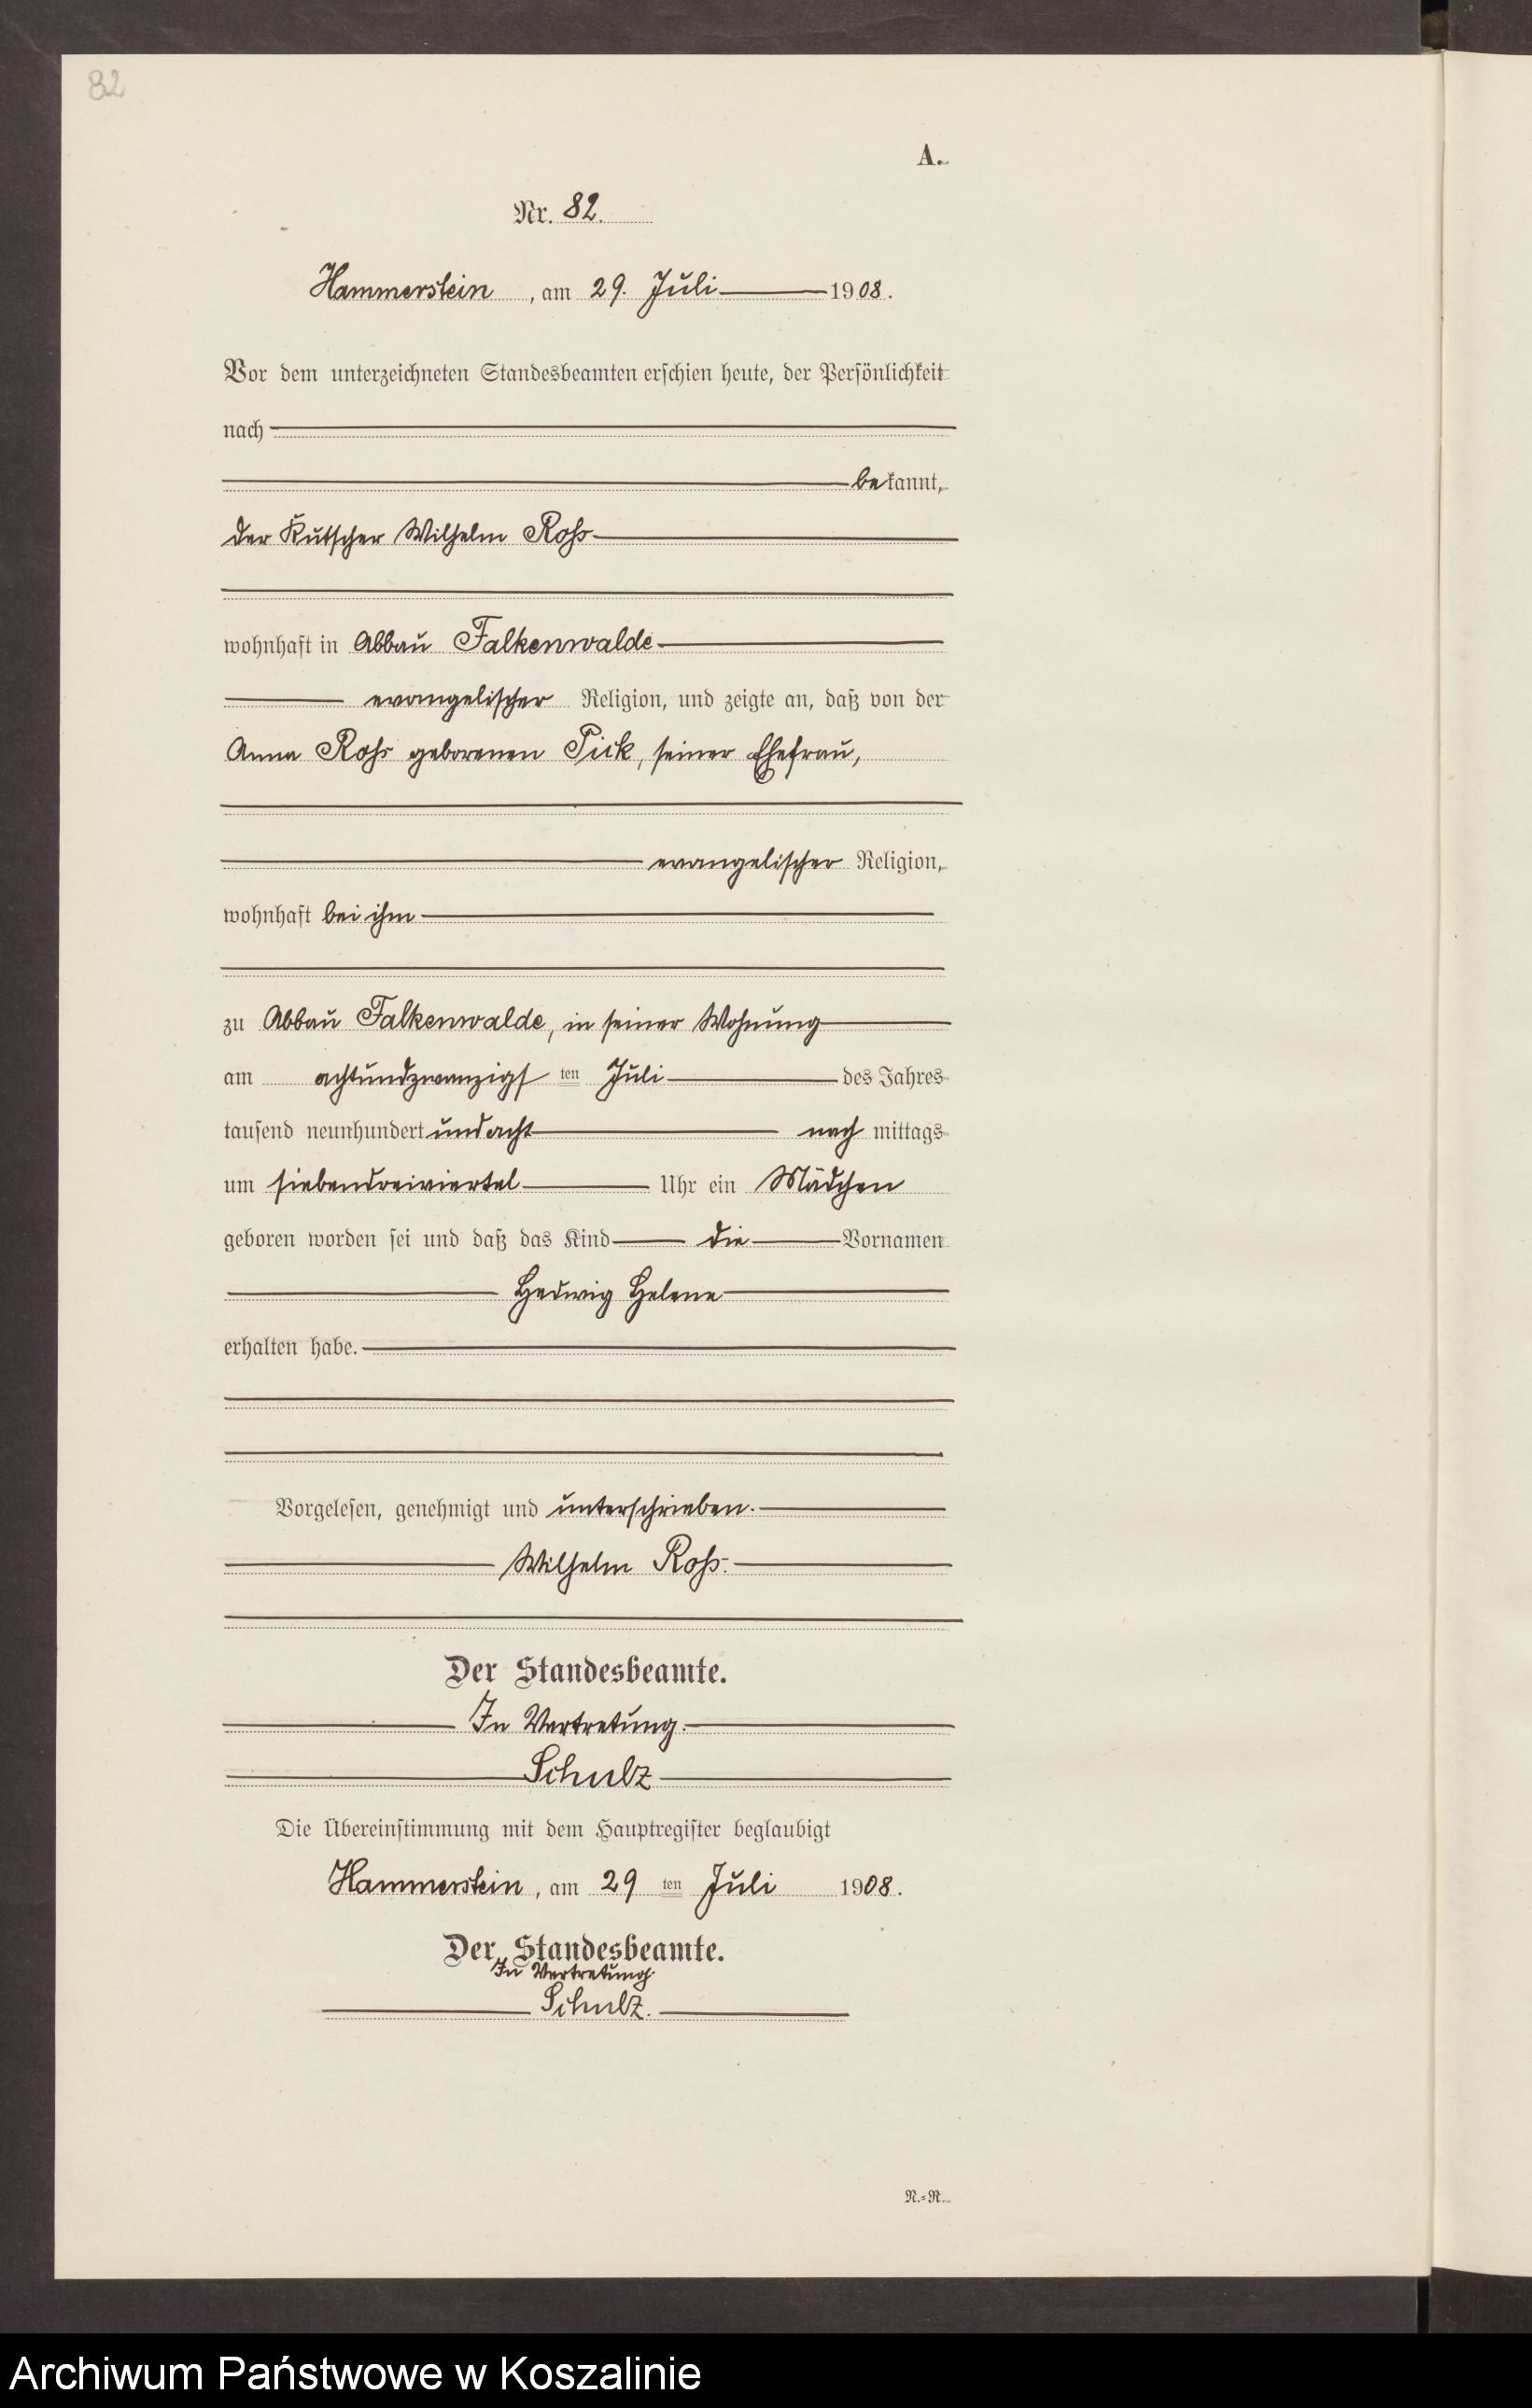 82
A.
Nr. 82.
Hammerstein, am 29. Juli 1908.
Vor dem unterzeichneten Standesbeamten erschien heute, der Persönlichkeit
nach
bekannt,
der Kutscher Wilhelm Roß
wohnhaft in Abbau Falkenwalde
evangelischer Religion, und zeigte an, daß von der
Anna Roß geborenen Pick, seiner Ehefrau,
evangelischer Religion,
wohnhaft bei ihm
zu Abbau Falkenwalde, in seiner Wohnung
am achtundzwanzigsten Juli des Jahres
tausend neunhundert und acht nachmittags
um siebendreiviertel Uhr ein Mädchen
geboren worden sei und daß das Kind die Vornamen
Hedwig Helene
erhalten habe.
Vorgelesen, genehmigt und unterschrieben.
Wilhelm Roß.
Der Standesbeamte.
In Vertretung.
Schulz
Die Übereinstimmung mit dem Hauptregister beglaubigt
Hammerstein, am 29ten Juli 1908.
Der Standesbeamte.
In Vertretung.
Schulz.
N.=R.
Archiwum Państwowe w Koszalinie